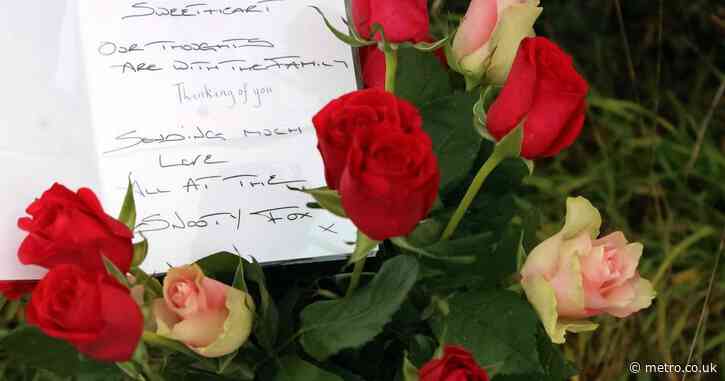 SWEETHEART
OUR THOUGHTS
ARE WITH THE FAMILY
Thinking of you
SENDING MUCH
LOVE
ALL AT THE
SNOOTY FOX x
© metro.co.uk